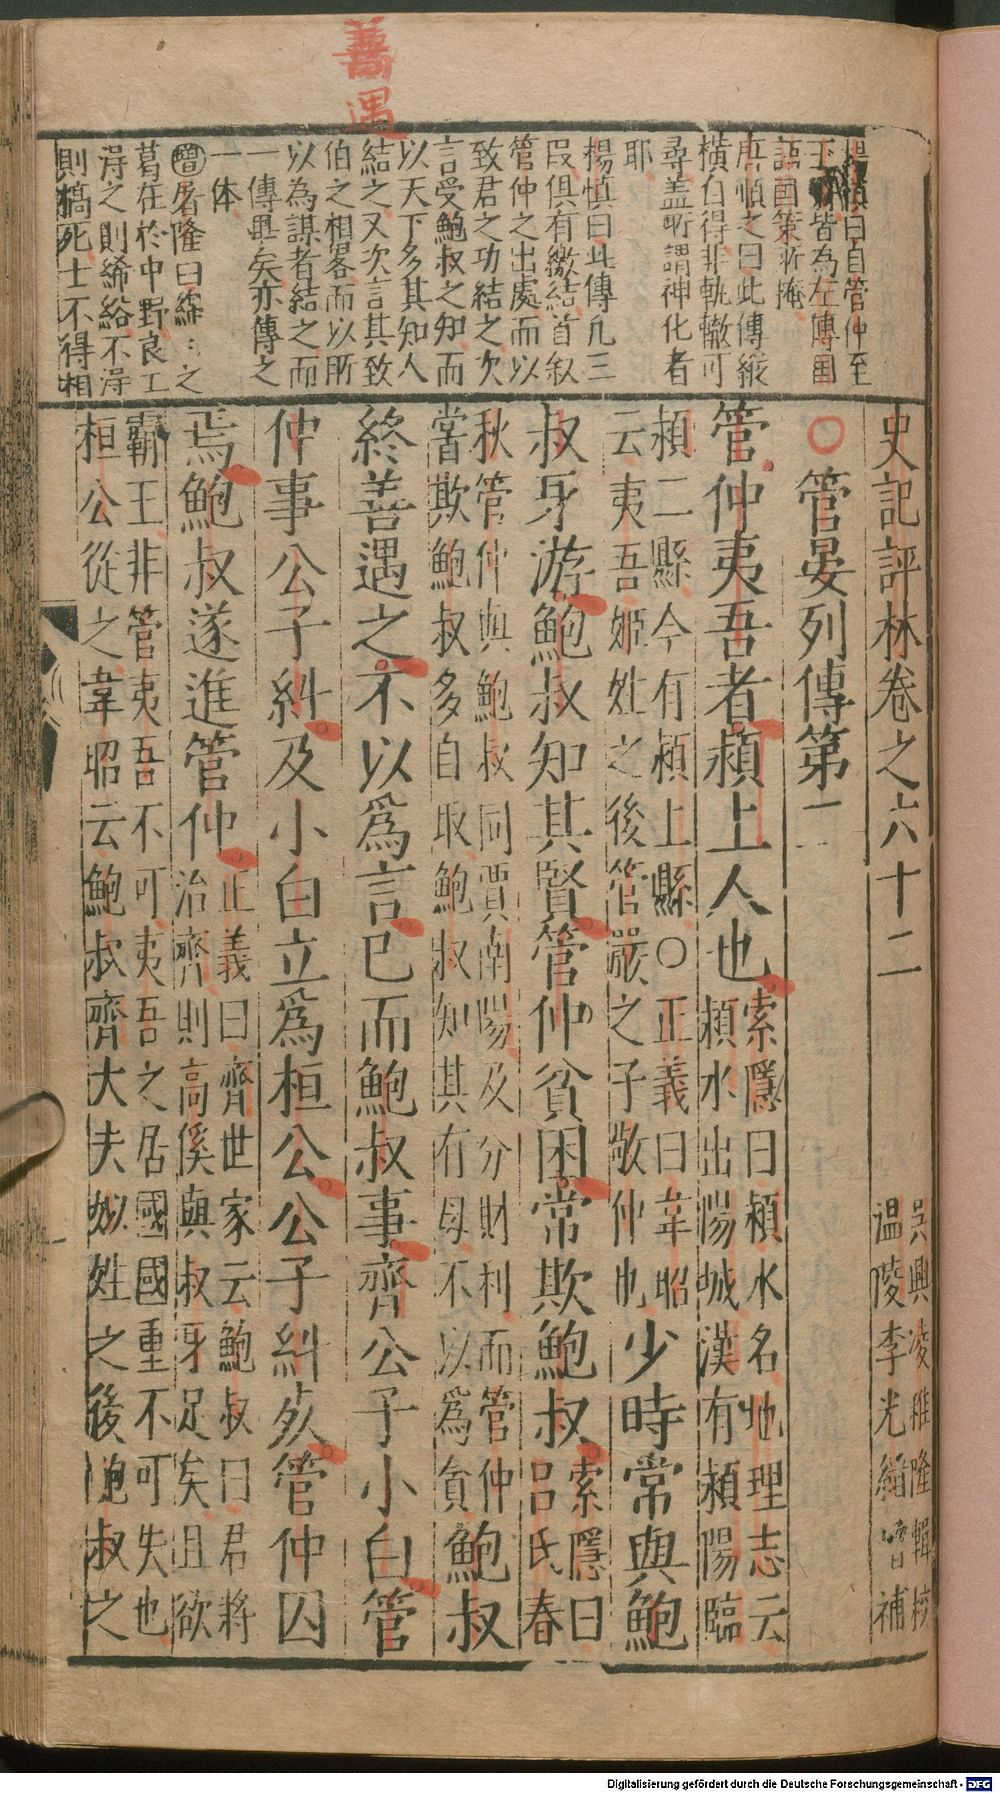 善遇
楊慎曰自管仲至
皆為左傳國
語國策所掩
唐順之曰此傳縱
橫自得非軌轍可
尋盖所謂神化者
耶
楊慎曰此傳凡三
段俱有繳結首叙
管仲之出處而以
致君之功結之次
言受鮑叔之知而
以天下多其知人
結之又次言其致
伯之相畧而以所
以為謀者結之而
一傳畢矣亦傳之
一体
增屠隆曰絲之
葛在於中野良工
淂之則絺綌不淂
則槁死士不得相
史記評林卷之六十二
吳興凌稚隆輯校
温陵李光縉增補
○管晏列傳第二
管仲夷吾者潁上人也
索隱曰潁水名地理志云
潁水出陽城漢有潁陽臨
潁二縣今有潁上縣○正義曰韋昭
云夷吾姬姓之後管嚴之子敬仲也
少時常與鮑
叔牙游鮑叔知其賢管仲貧困常欺鮑叔
索隱曰
呂氏春
秋管仲與鮑叔同賈南陽及分財利而管仲
嘗欺鮑叔多自取鮑叔知其有母不以為貪
鮑叔
終善遇之不以爲言已而鮑叔事齊公子小白管
仲事公子糾及小白立爲桓公公子糾死管仲囚
焉鮑叔遂進管仲
正義曰齊世家云鮑叔曰君將
治齊則高傒與叔牙足矣且欲
霸王非管夷吾不可夷吾之居國國重不可失也
桓公從之韋昭云鮑叔齊大夫姒姓之後鮑叔之
Digitalisierung gefördert durch die Deutsche Forschungsgemeinschaft - DFG